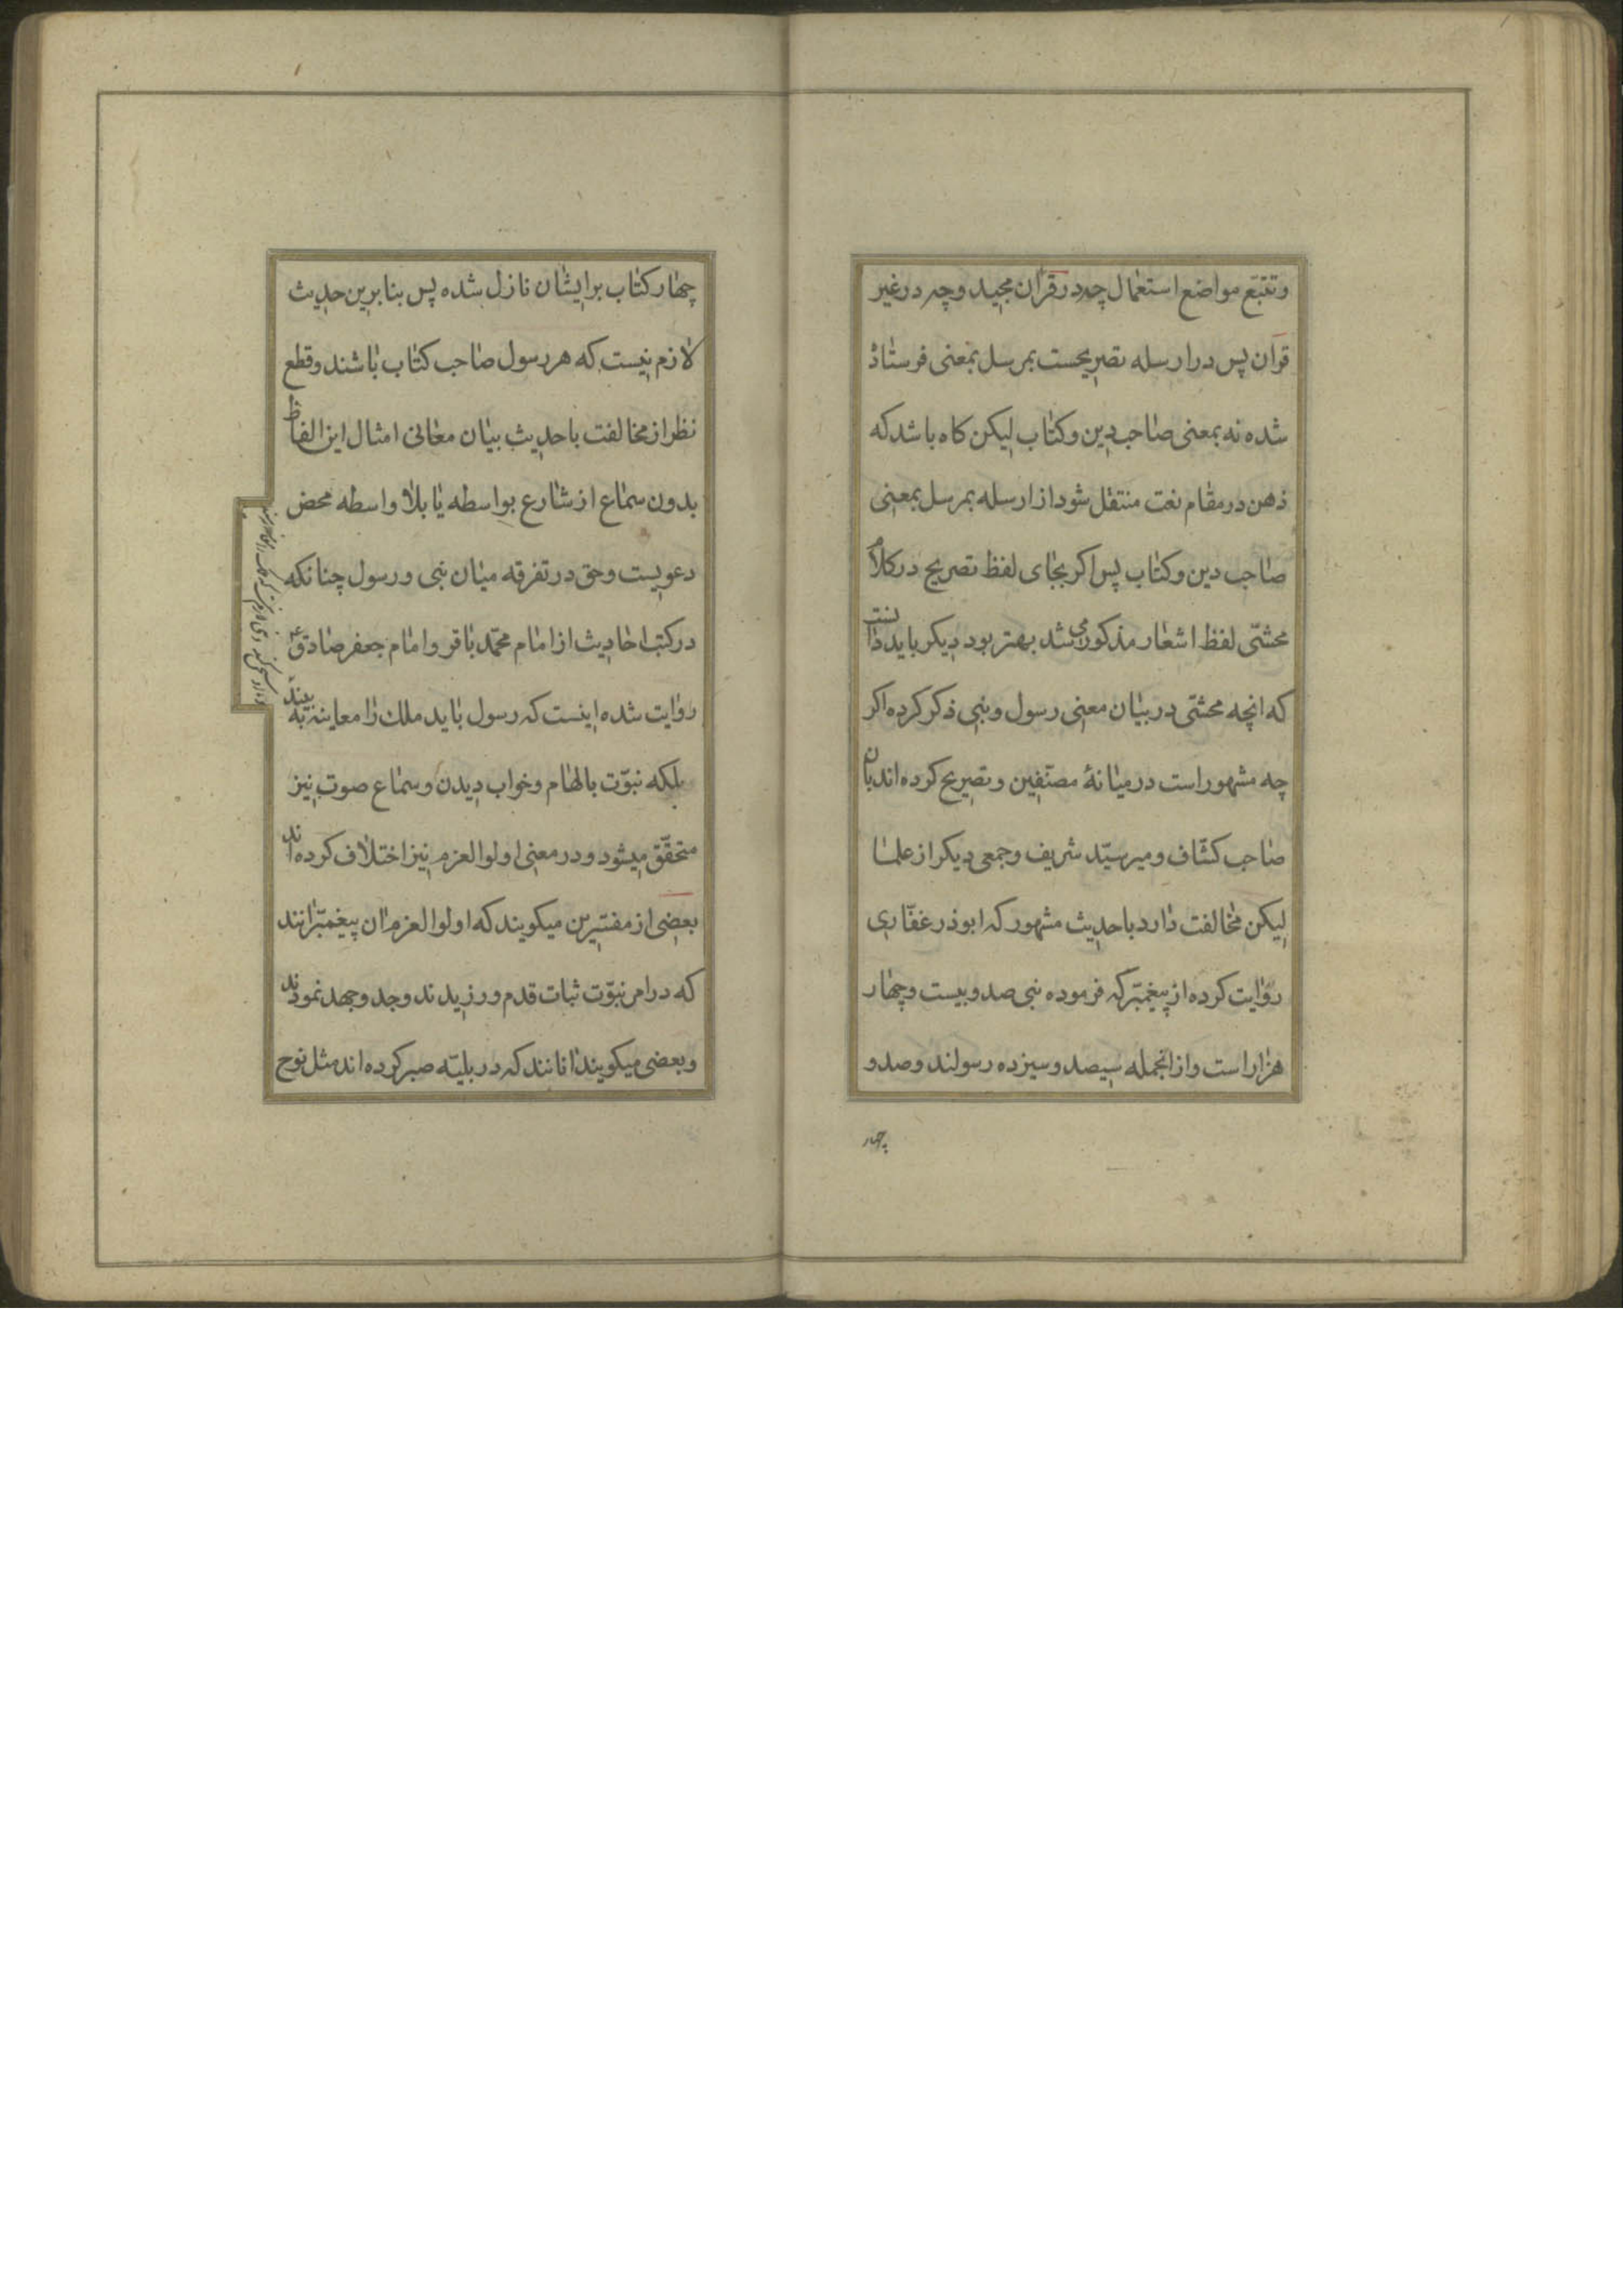 وتتبّع مواضع استعمال چه در قرآن مجید وچه در غیر
قران پس در ارسله تصریحست بمرسل بمعنی فرستاد
شده نه بمعنی صاحب دین وکتاب لیکن کاه باشد که
ذهن در مقام نعت منتقل شود از ارسله بمرسل بمعنی
صاحب دین وکتاب پس اکر بجای لفظ تصریح در کلام
محشّی لفظ اشعار مذکور می شد بهتر بود دیکر باید دانست
که انچه محشّی در بیان معنی رسول ونبی ذکر کرده اکر
چه مشهور است در میانهٔ مصنّفین وتصریح کرده اند بان
صاحب کشّاف ومیر سیّد شریف وجمعی دیکر از علما
لیکن مخالفت دارد با حدیث مشهور که ابوذر غفّاری
روایت کرده از پیغمبر که فرموده نبی صد وبیست وچهار
هزار است واز انجمله سیصد وسیزده رسولند وصد و
چهار
چهار کتاب بر ایشان نازل شده پس بنا برین حدیث
لازم نیست که هر رسول صاحب کتاب باشند وقطع
نظر از مخالفت با حدیث بیان معانی امثال این الفاظ
بدون سماع از شارع بواسطه یا بلا واسطه محض
دعویست وحق در تفرقه میان نبی ورسول چنانکه
در کتب احادیث از امام محمّد باقر وامام جعفر صادق ع
روایت شده اینست که رسول باید ملک را معاینه به بیند
بلکه نبوّت بالهام وخواب دیدن وسماع صوت نیز
متحقّق میشود ودر معنی اولوالعزم نیز اختلاف کرده اند
بعضی از مفسّرین میکویند که اولوالعزم ان پیغمبرانند
که در امر نبوّت ثبات قدم ورزیدند وجد وجهد نمودند
وبعضی میکویند انانند که در بلیّه صبر کرده اند مثل نوح